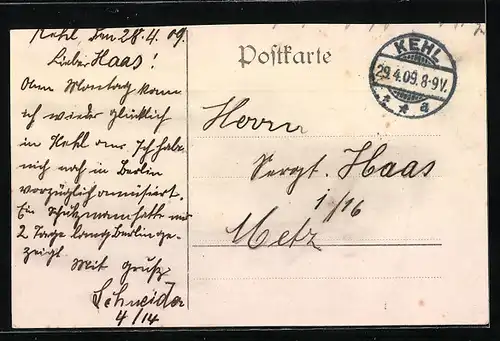 Kehl den 28.4.09.
Lieber Haas!
Am Montag kam
ich wieder glücklich
in Kehl an. Ich habe
mich noch in Berlin
vorzüglich amüsiert.
Ein Schutzmann hatte mir
2 Tage lang Berlin ge-
zeigt.
Mit Gruß
Schneider
4/14
Postkarte
KEHL
29.4.09.8-9V.
* * a
Herrn
Sergt. Haas
1/16
Metz